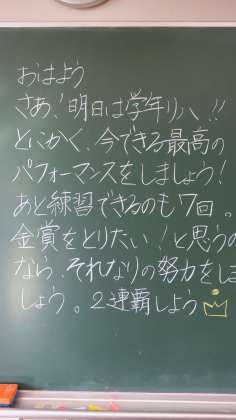 おはよう
さあ!明日は学年リハ!!
とにかく、今できる最高の
パフォーマンスをしましょう!
あと練習できるのも7回。
金賞をとりたい!と思うの
なら、それなりの努力をしま
しょう。2連覇しよう